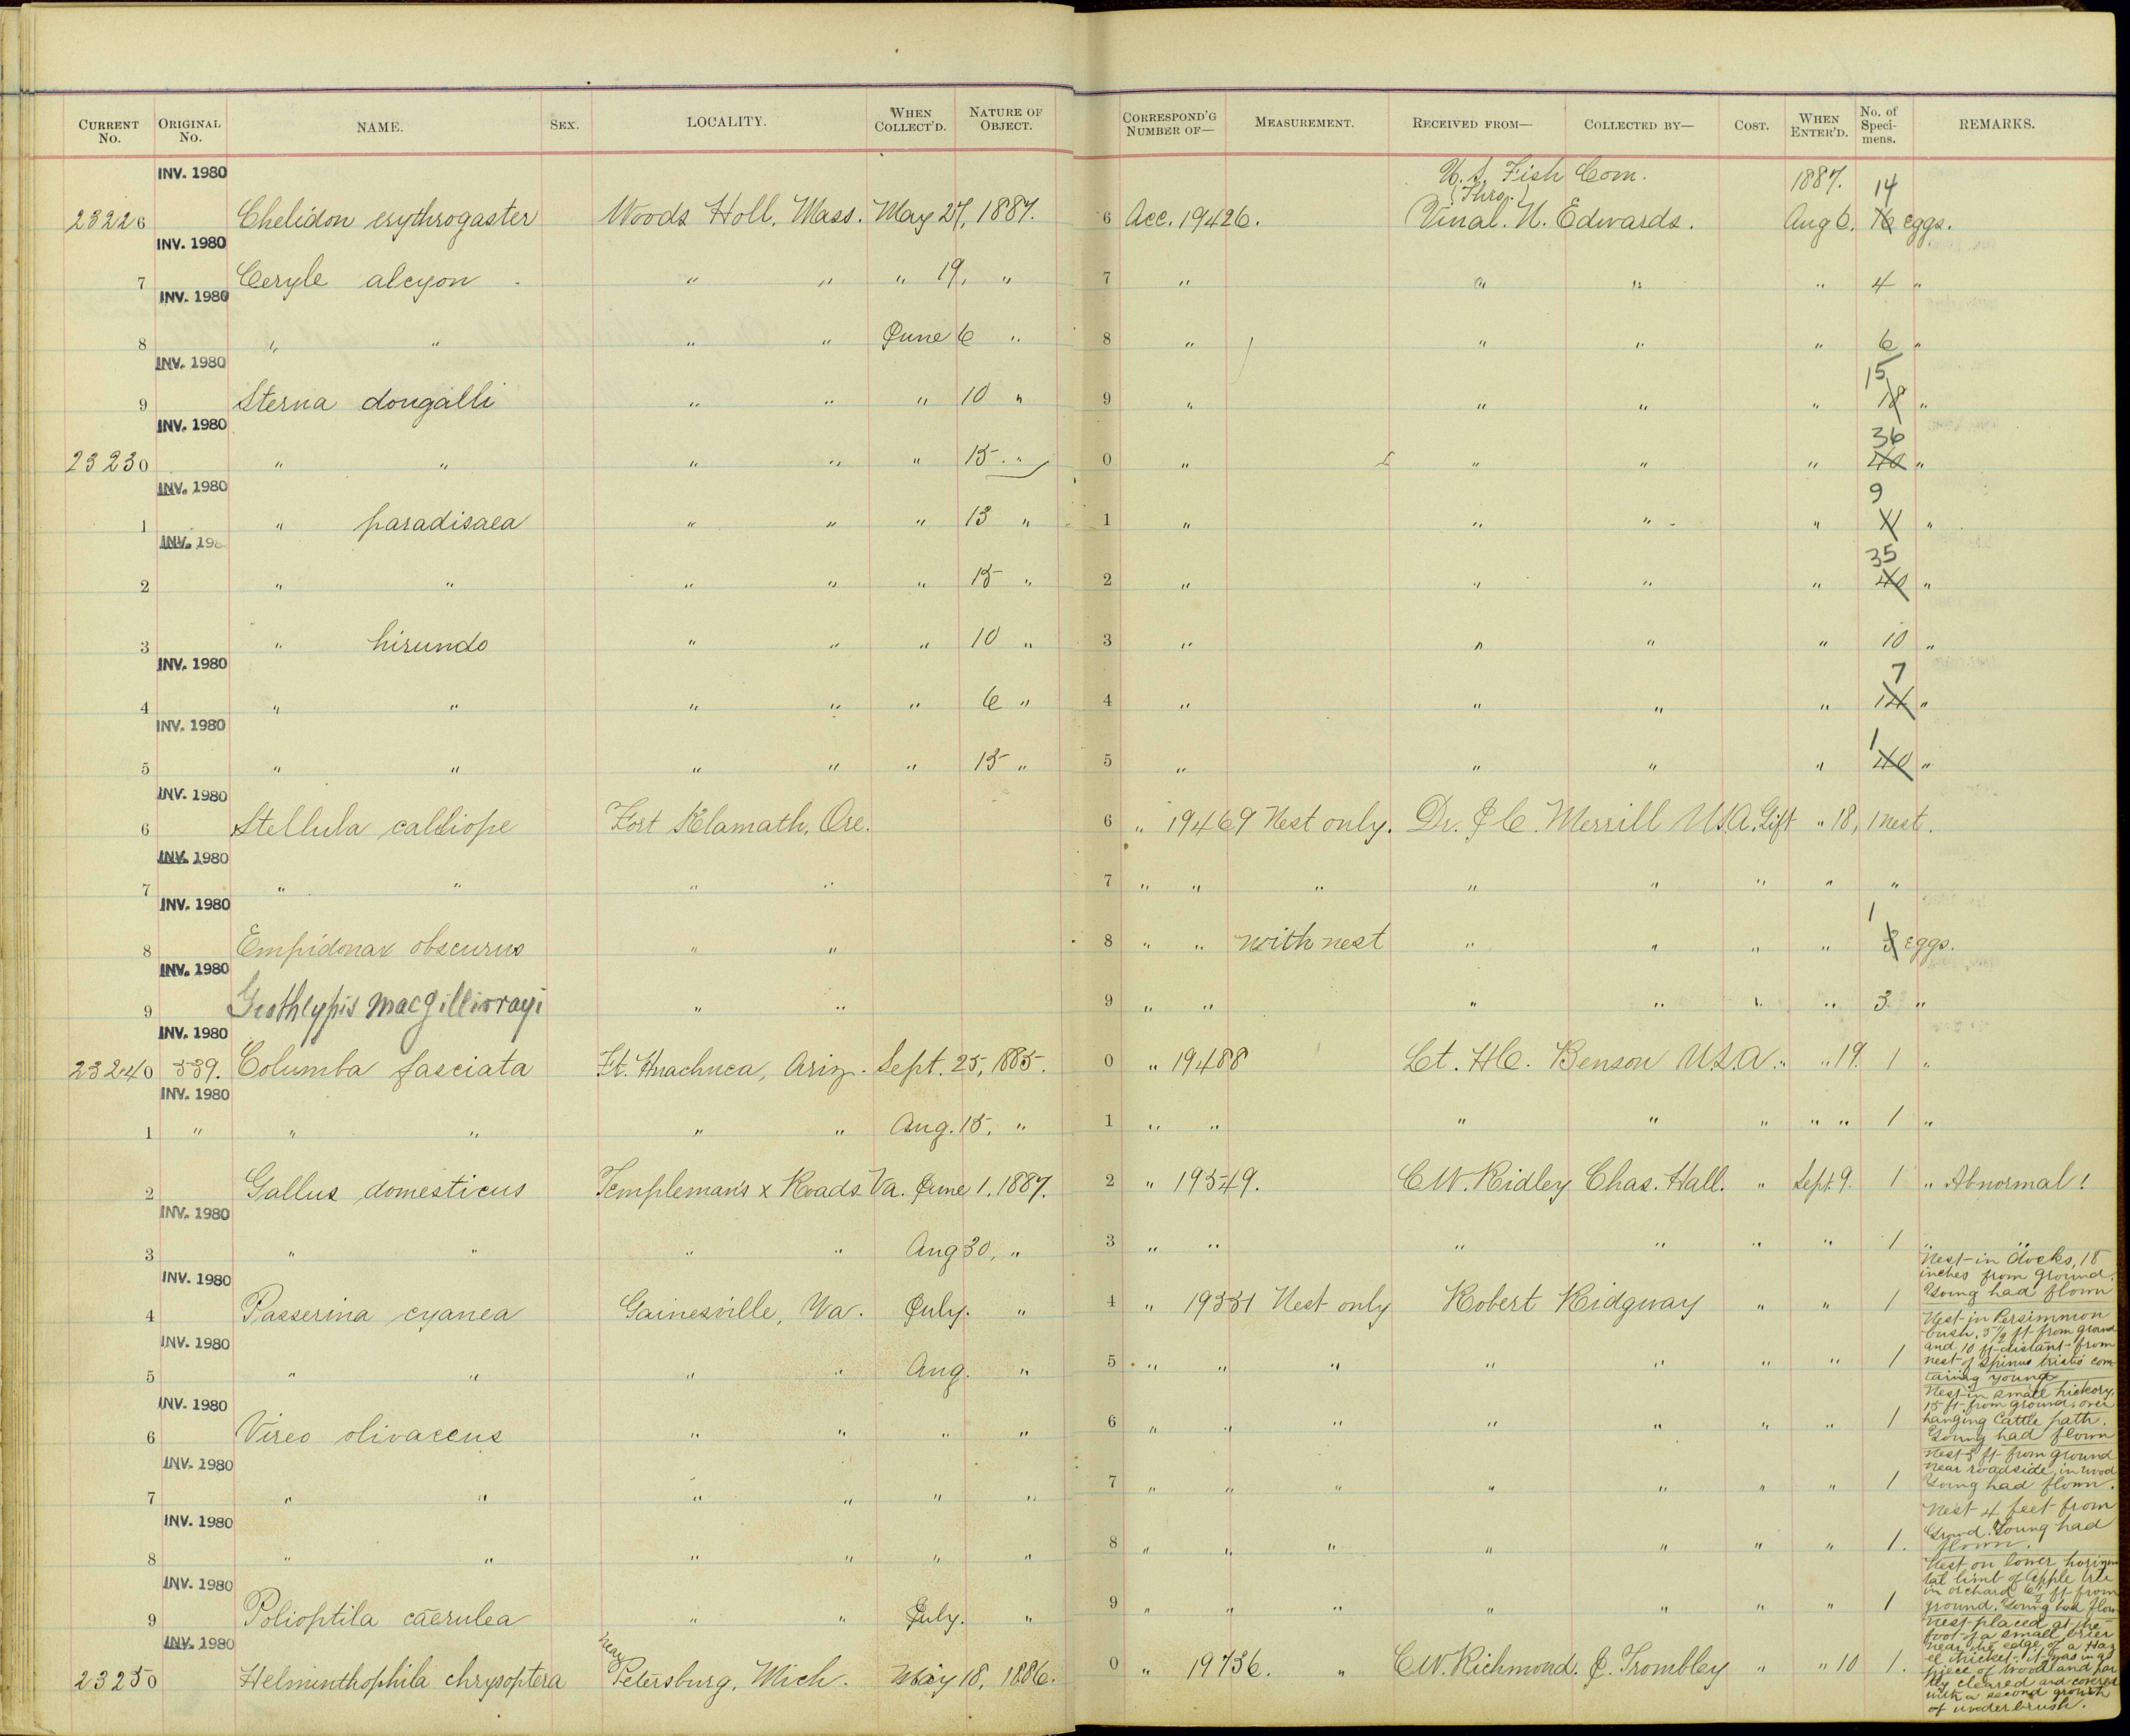 CURRENT No. ORIGINAL No. NAME. SEX. LOCALITY. WHEN COLLECT'D. NATURE OF OBJECT. CORRESPOND'G NUMBER OF— MEASUREMENT. RECEIVED FROM— COLLECTED BY— COST. WHEN ENTER'D. No. of Speci- mens. REMARKS.
INV. 1980 U.S. Fish Com. 1887. 14
(Thro.)
23226 Chelidon erythrogaster Woods Holl, Mass. May 27, 1887. 6 Acc. 19426. Vinal. N. Edwards. Aug 6. 16 eggs.
INV. 1980
7 Ceryle alcyon " " " 19, " 7 " " " " 4 "
INV. 1980
8 " " " " June 6 " 8 " " " " 6 "
INV. 1980 15
9 Sterna dougalli " " " 10 " 9 " " " " 18 "
INV. 1980 36
23230 " " " " " 15. " 0 " " " " 40 "
INV. 1980 9
1 " paradisaea " " " 13 " 1 " " " " 11 "
INV. 198 35
2 " " " " " 15 " 2 " " " " 40 "
3 " hirundo " " " 10 " 3 " " " " 10 "
INV. 1980 7
4 " " " " " 6 " 4 " " " " 14 "
INV. 1980 1
5 " " " " " 15 " 5 " " " " 40 "
INV. 1980
6 Stellula calliope Fort Klamath, Ore. 6 " 19469 Nest only. Dr. J C. Merrill U.S.A. Gift " 18, 1 nest.
INV. 1980
7 " " " " 7 " " " " " " " "
INV. 1980 1
8 Empidonax obscurus " " 8 " " with nest " " " " 3 eggs.
INV. 1980
9 Geothlypis macgillivrayi " " 9 " " " " " " 3 "
INV. 1980
23240 539. Columba fasciata Ft. Huachuca, Ariz. Sept. 25, 1885. 0 " 19488 Lt. H.C. Benson U.S.A. " " 19. 1 "
INV. 1980
1 " " " " " Aug. 15, " 1 " " " " " " " 1 "
2 Gallus domesticus Templeman's x Roads Va. June 1. 1887. 2 " 19549. C.W. Ridley Chas. Hall. " Sept. 9. 1 " Abnormal!
INV. 1980
3 " " " " Aug 30, " 3 " " " " " " 1 " "
INV. 1980
4 Passerina cyanea Gainesville, Va. July. " 4 " 19551 Nest only Robert Ridgway " " 1
Nest in docks, 18
inches from ground.
Young had flown
INV. 1980
5 " " " " Aug. " 5 " " " " " " " 1
Nest in Persimmon
bush, 5 1/2 ft from ground
and 10 ft distant from
nest of Spinus tristis con-
taining young
INV. 1980
6 Vireo olivaceus " " " " 6 " " " " " " " 1
Nest in small hickory,
15 ft from ground, over
hanging Cattle path.
Young had flown
INV. 1980
7 " " " " " " 7 " " " " " " " 1
Nest 5 ft from ground
near roadside, in wood
Young had flown.
INV. 1980
8 " " " " " " 8 " " " " " " " 1.
Nest 4 feet from
Ground. Young had
flown.
INV. 1980
9 Polioptila cærulea " " July. " 9 " " " " " " " 1
Nest on lower horizon
tal limb of Apple tree
in orchard 6 1/2 ft from
ground. Young had flown
INV. 1980
23250 Helminthophila chrysoptera near Petersburg, Mich. May 18, 1886. 0 " 19736. " C.W. Richmond. J. Trombley " " 10 1.
Nest placed at the
foot of a small brier
near the edge of a Haz
el thicket. it was in a
piece of woodland par
tly cleared and covered
with a second growth
of underbrush.